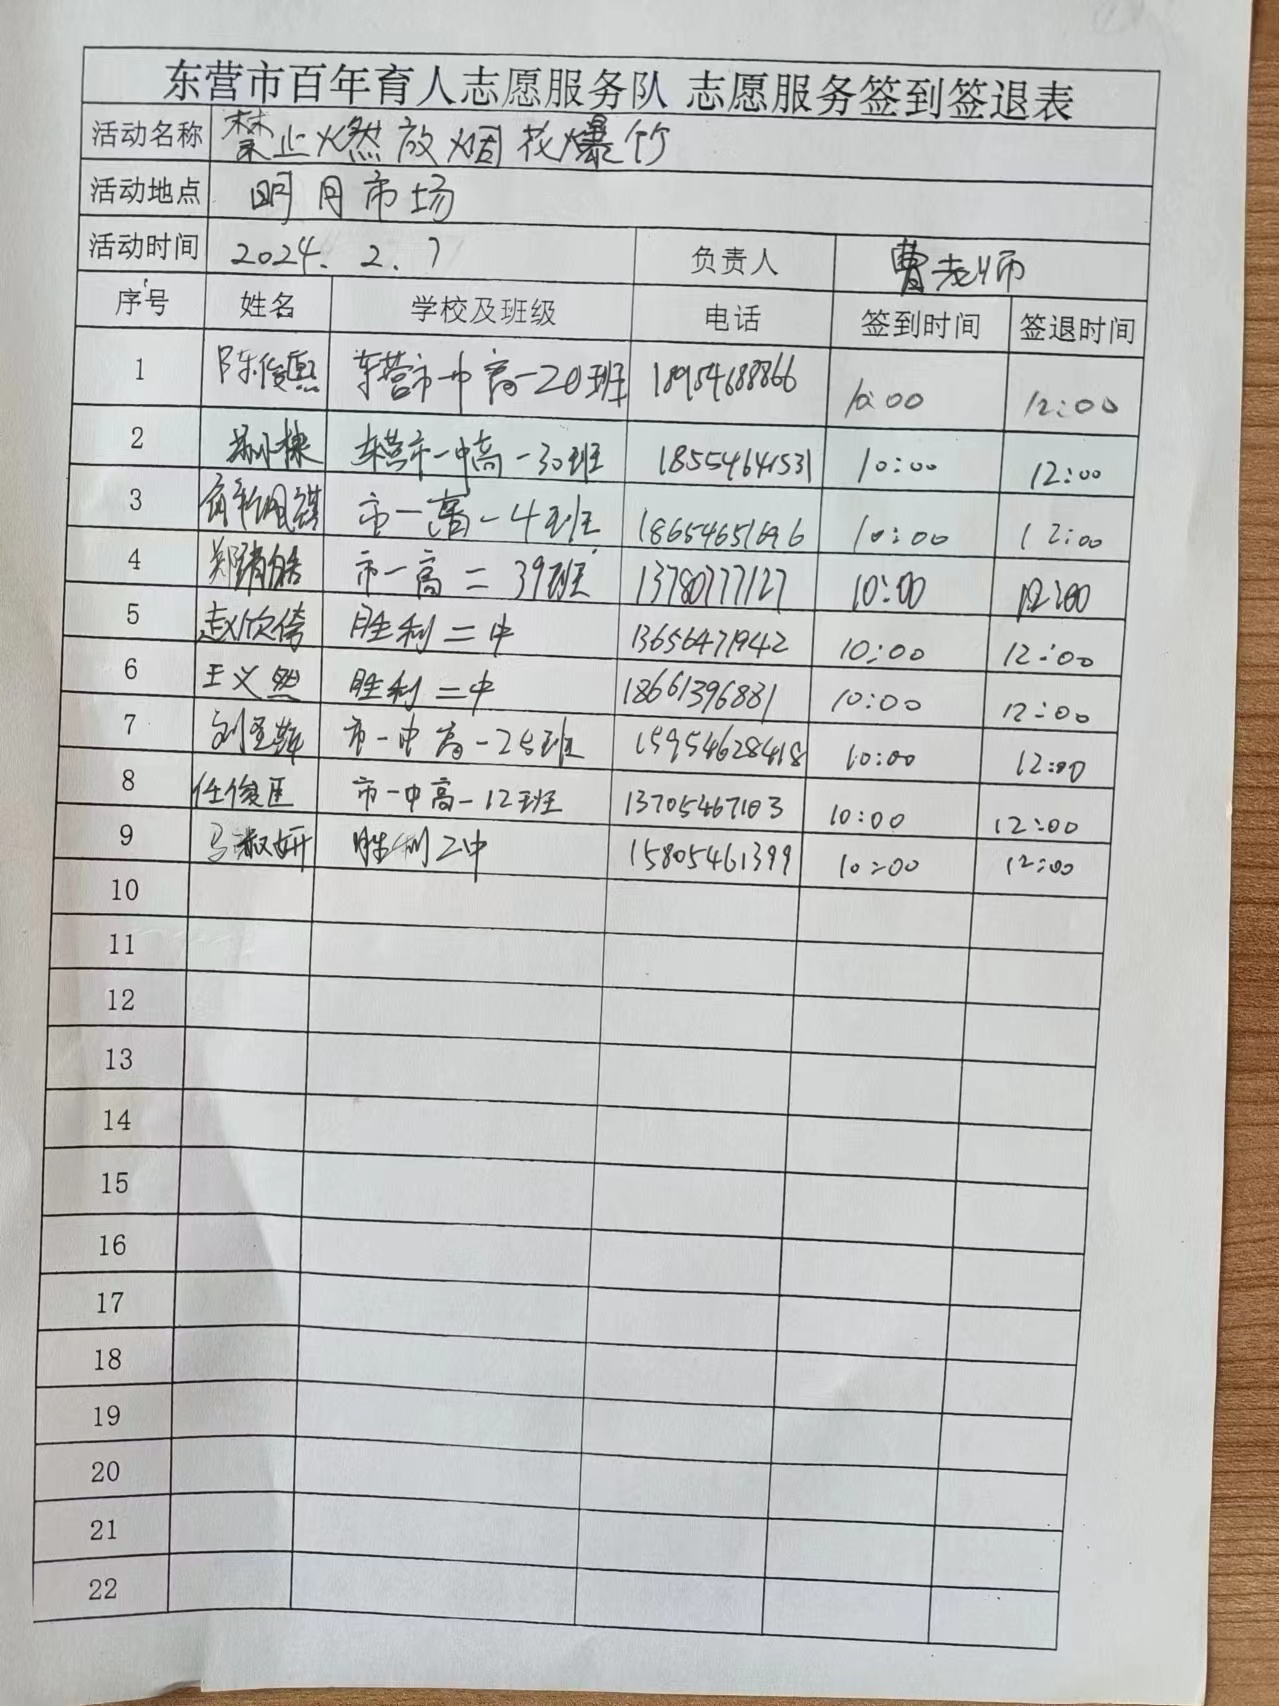 东营市百年育人志愿服务队 志愿服务签到签退表
活动名称 禁止燃放烟花爆竹
活动地点 明月市场
活动时间 2024.2.7 负责人 曹老师
序号 姓名 学校及班级 电话 签到时间 签退时间
1 陈俊熙 东营市一中高一20班 18954688866 10:00 12:00
2 东营市一中高一30班 18554641531 10:00 12:00
3 市一高一4班 18654651696 10:00 12:00
4 市一高二39班 13780777127 10:00 12:00
5 赵欣倚 胜利二中 13656471942 10:00 12:00
6 王义然 胜利二中 18661396831 10:00 12:00
7 市一中高一25班 15954628418 10:00 12:00
8 任俊匡 市一中高一12班 13705467103 10:00 12:00
9 马淑妍 胜利二中 15805461399 10:00 12:00
10
11
12
13
14
15
16
17
18
19
20
21
22